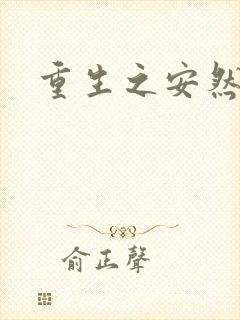 重生之安然
俞正声